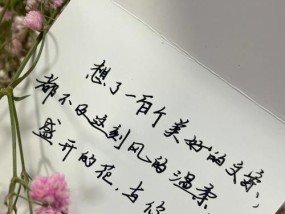 想了一百个美好的文案，
都不及这刻风的温柔，
盛开的花，与你